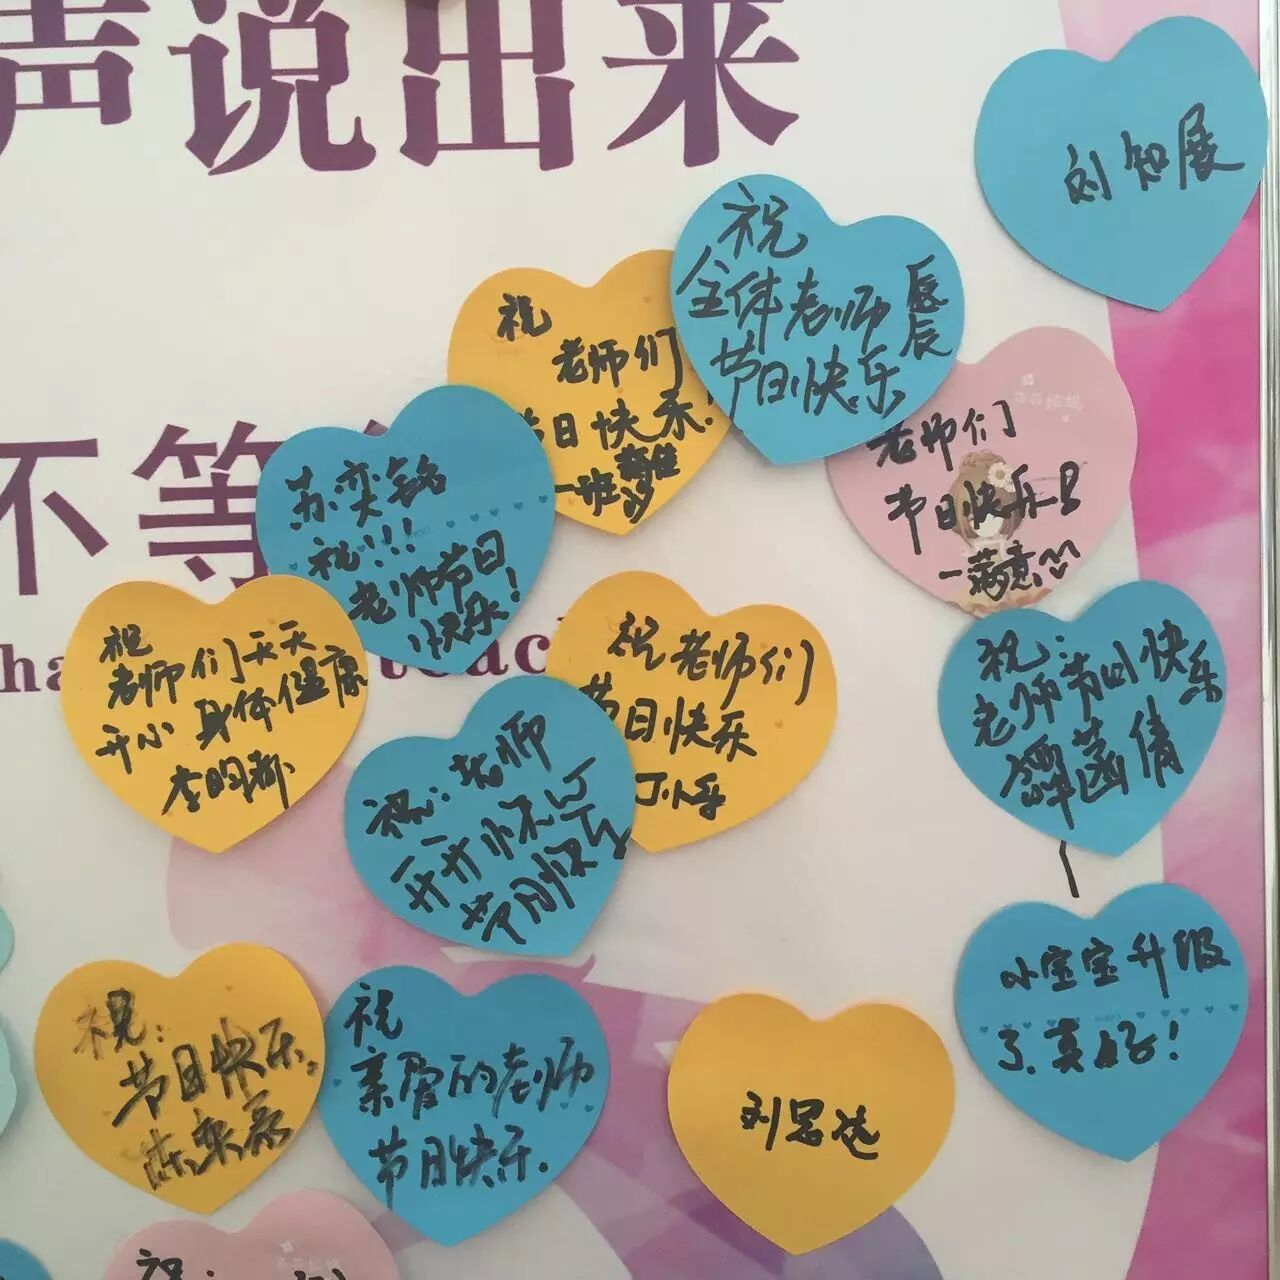 声说出来
不等
刘知展
祝
全体老师
节日快乐
辰辰
祝
老师们
节日快乐!
一班
老师们
节日快乐
苏奕铭
祝!!!
老师节日
快乐!
祝
老师们天天
开心 身体健康
祝老师们
节日快乐
祝:
老师节日快乐
菡倩
祝:老师
开开快乐
节日快乐
小宝宝升级
了.真好!
祝:
节日快乐
祝
亲爱的老师
节日快乐.
刘思
祝: